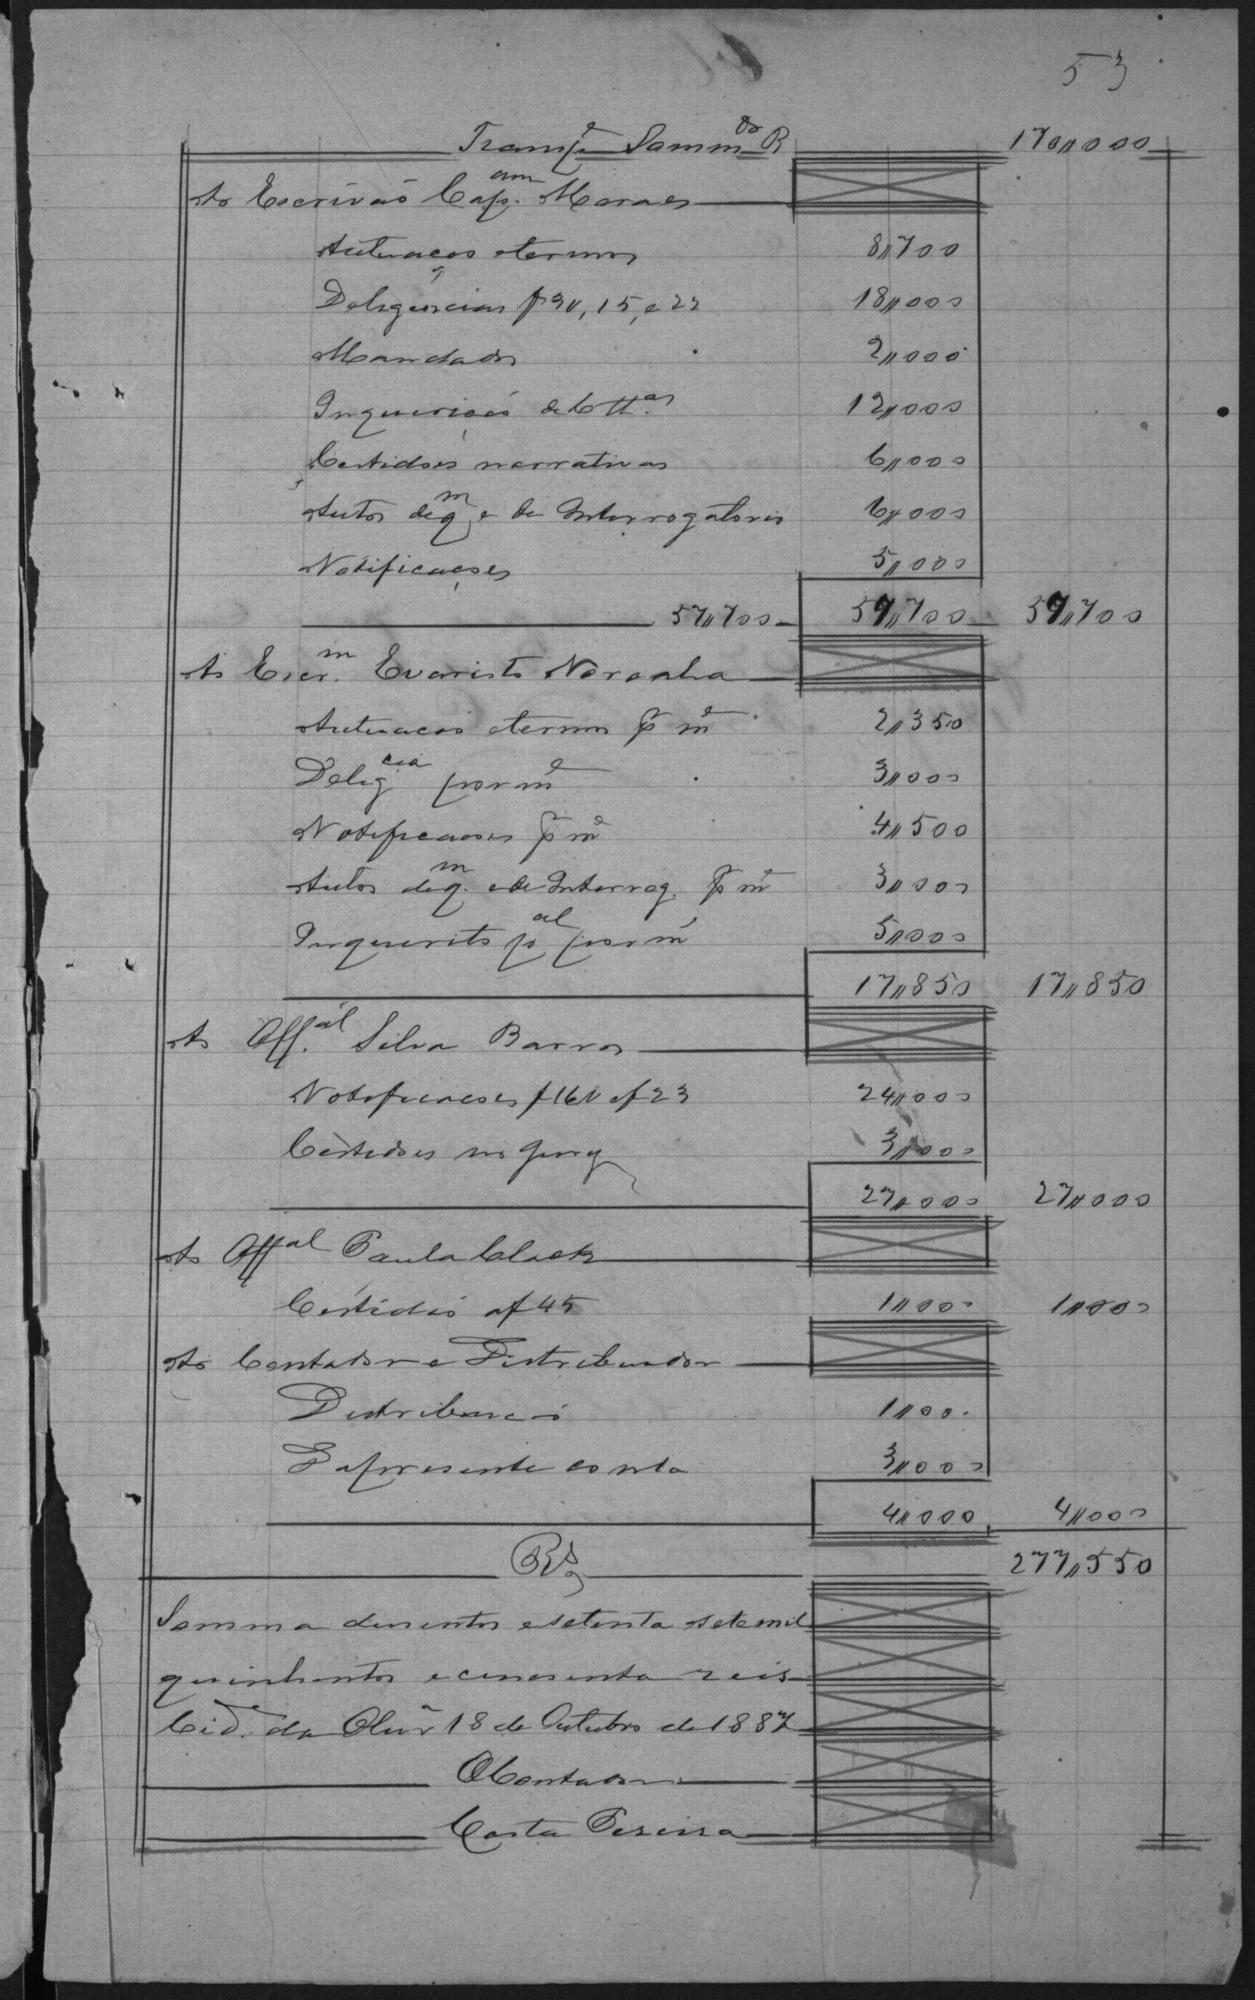 53
Transpe Somma do R 170,,000
Ao Escrivão Capam. Moraes
Autuacão e termos 8,,700
Deligencias f 3v, 15, e 22 18,,000
Mandado 2,,000
Inquerição de 6 ttas 12,,000
Certidões narrativas 6,,000
Autos de qm e de Interrogatorio 6,,000
Notificações 5,,000
57,,700 57,,700 57,,700
Ao Escrm. Evaristo Noronha
Autuacão e termos pr me 2,,350
Deligcia por me 3,,000
Notificacoes pr me 4,,500
Autos de qm. e de Interrog. pr me 3,,000
Inquerito pal por me 5,,000
17,,850 17,,850
Ao Offal. Silva Barros
Notificacoes f 16v e f 23 24,,000
Certidoes no Jury 3,,000
27,,000 27,,000
Ao Offal Paula Clack
Certidão a f 45 1,,000 1,,000
Ao Contador e Distribuidor
Distribuicão 1,,000
Da presente conta 3,,000
4,,000 4,,000
Rs 277,,550
Somma dusentos e setenta sete mil
quinhentos e cincoenta reis
Cide. da 18 de Outubro de 1887
O Contador
Costa Pereira